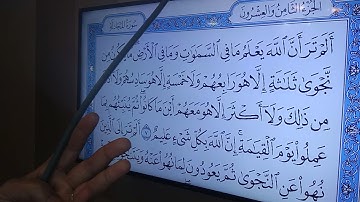 الجزء الثامن والعشرون سورة المجادلة
ألم تر أن الله يعلم ما في السموت وما في الأرض ما يكون من
نجوى ثلثة إلا هو رابعهم ولا خمسة إلا هو سادسهم ولا
من ذلك ولا أكثر إلا هو معهم أين ما كانوا ثم ينبئهم بما
عملوا يوم القيمة إن الله بكل شيء عليم ٧ ألم تر إلى الذين
نهوا عن النجوى ثم يعودون لما نهوا عنه